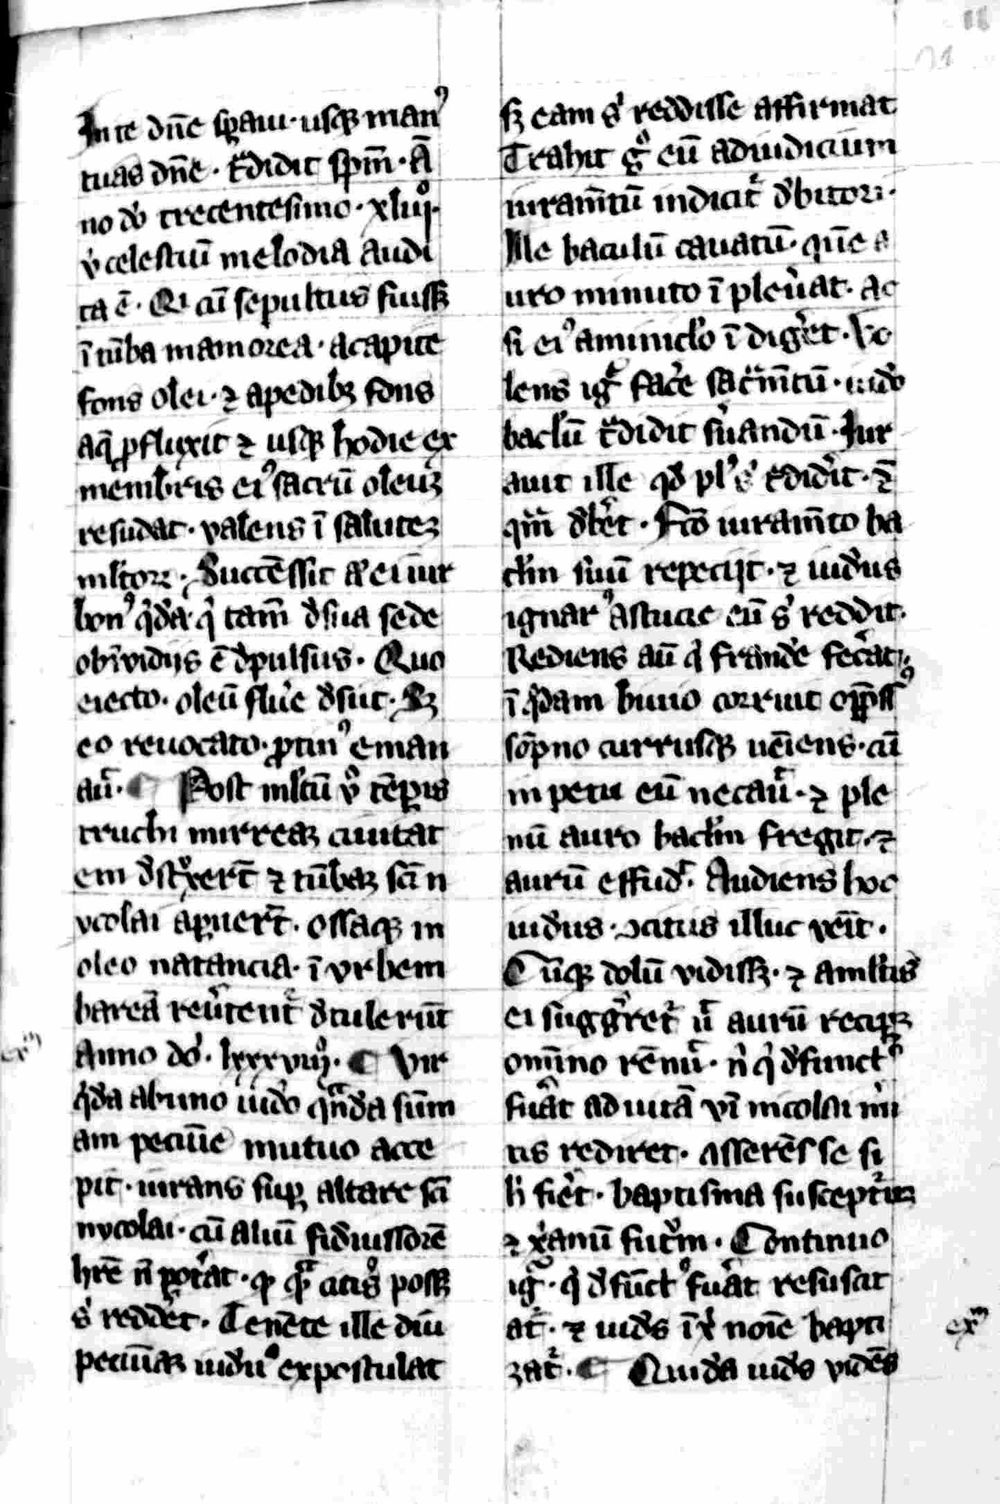 In te dn̄e sꝑaui · usqꝫ man⁹
tuas dn̄e · t̃didit sp̄m · A̅
no do̅ trecentesimo · xliij ·
v̓ celestiū melodia audi
ta ē · Qi cū sepultus fuissꝫ
ī tūba mamorea · acapite
fons olei · ⁊ apedibꝫ fons
aq̃ ꝓfluxit ⁊ usqꝫ hodie ex
membris ei⁹ sacrū oleuꝫ
resudat · valens ī saluteꝫ
ml̓toꝝ · Successit aū ei vir
bon⁹ q̓dā · q̓ tam̄ d̓ sua sede
ob īvidijs ē d̓pulsus · Quo
eiecto · oleū flue̓ d̓siit · Sꝫ
eo reuocato · ꝓtin⁹ eman
aũ · ¶ Post ml̓tū v̓ tēꝑis
truchi mirreaꝫ ciuitat
em d̓st̓xer̄t ⁊ tūbaꝫ sc̄i n
ycolai aꝑuer̄t · ossaqꝫ in
oleo natancia · ī vrbem
bareā reũtent̃ d̓tulerūt
Anno do̅ · lxxxviij · ¶ Vir
ex̄ᵐ
q̓da ab uno iud̓o qn̄da sūm
am pecūie mutuo acce
pit · iurans suꝑ altare sc̄i
nycolai · cū aliū fid̓iussorē
hr̄e n̄ pot̓at · ꝙ q̃ cici⁹ possꝫ
s̓ redd̓et · Tenēte ille diū
pecūiaꝫ iud̓u⁹ expostulat
sꝫ eam s̓ reddisse affirmat
Trahit g̊ eū ad iudicium
iuram̄tū indicit̃ d̓bitori ·
Ille baculū cauatū · que̅ a
uro minuto ī plēuat · ac
si ei⁹ aminicl̓o īdiger̓et · Vo
lens ig̃ face̓ sac̃m̄tū · iud̓o
bacl̓ū t̃didit s̓uandū · Iur
auit ille qd̓ pl⁹ s̓ r̄didit · ꝗ̃
qm̃ d̓ber̓et · Fc̄o iuram̄to ba
cl̓m suū repecijt · ⁊ iud̓us
ignar⁹ astucie eū s̓ reddit ·
Rediens aū q̓ fraude̓ fec̓at ·
ī q̓dam biuio corruit opp̄ss⁹
sōpno currusqꝫ ue̅iens · cū
inpetu eū necaũ · ⁊ ple
nū auro bacl̓m fregit · ⁊
aurū effud̓ · Audiens hoc
iud̓us · ↄcitus illuc veīt ·
Cūqꝫ dolū vidissꝫ · ⁊ aml̓tis
ei sugger̓et̃ ut̃ aurū recipꝫ
omīno rēnũ · n̓ q̓ d̓funct⁹
fu̓at ad uitā vi̅ nicolai mi̓i
tis rediret · asserēs se si
h̓ fie̓t · baptisma suscept̓uꝫ
⁊ x̓anū fut̓m · Continuo
ig̃ · q̓ d̓fūct⁹ fu̓at resuscit
at̃ · ⁊ iud̓s ī x̓ noīe bapti
ex̄ᵐ
zat̃ · ¶ Quida iud̓s vidēs